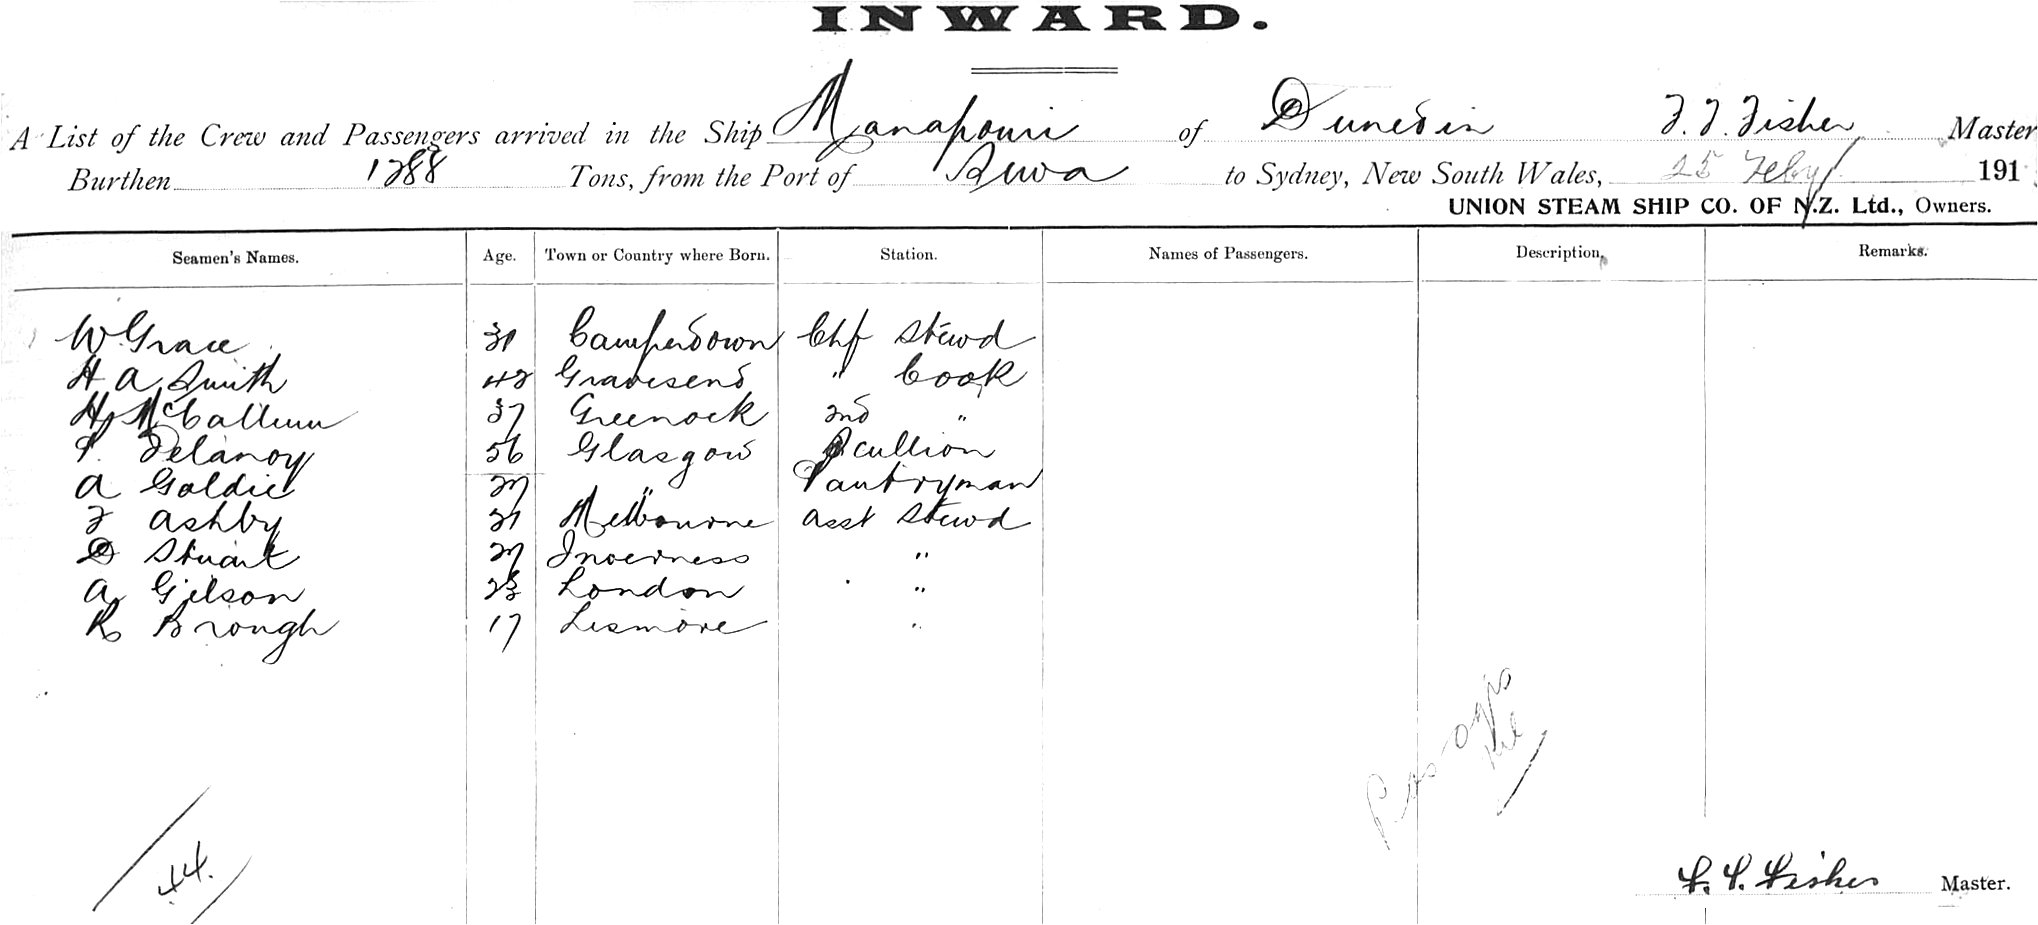 INWARD.
A List of the Crew and Passengers arrived in the Ship Manapouri of Dunedin F. J. Fisher Master
Burthen 1288 Tons, from the Port of Suva to Sydney, New South Wales, 25 Feby 191
UNION STEAM SHIP CO. OF N.Z. Ltd., Owners.
Seamen's Names. Age. Town or Country where Born. Station. Names of Passengers. Description. Remarks.
W Grace 31 Camperdown Chf Stewd
H A Smith 42 Gravesend " Cook
H McCallum 37 Greenock 2nd "
P. Delanoy 56 Glasgow Scullion
A Goldie 27 " Pantryman
F Ashby 21 Melbourne Asst Stewd
D Stuart 27 Inverness "
A Gilson 23 London "
R Brough 17 Lismore "
Passgrs
Nil
44.
Fisher Master.